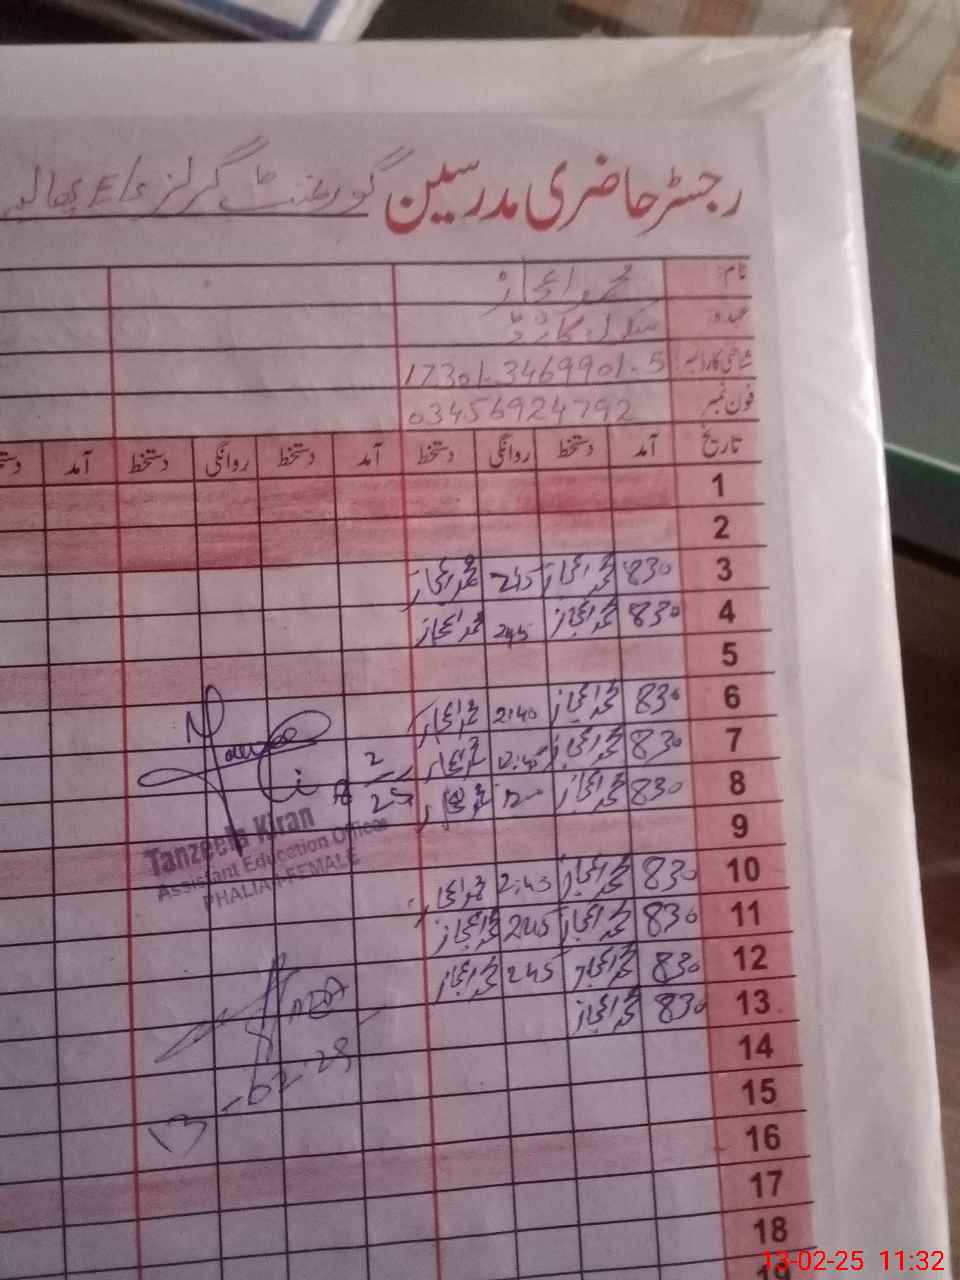 رجسٹر حاضری مدرسین گورنمنٹ گرلز E/S پھالیہ
نام: محمد اعجاز
عہدہ: سکول گارڈ
شناختی کارڈ نمبر: 17301-3469901-5
فون نمبر 03456924792
تاریخ آمد دستخط روانگی دستخط آمد دستخط روانگی دستخط آمد
1
2
3 830 محمد اعجاز 245 محمد اعجاز
4 830 محمد اعجاز 245 محمد اعجاز
5
6 830 محمد اعجاز 2:40 محمد اعجاز
7 830 محمد اعجاز 2:45 محمد اعجاز
8 830 محمد اعجاز 1200 محمد اعجاز
9
10 830 محمد اعجاز 2:45 محمد اعجاز
11 830 محمد اعجاز 245 محمد اعجاز
12 830 محمد اعجاز 245 محمد اعجاز
13 830 محمد اعجاز
14
15
16
17
18
19
Tanzeela Kiran
Assistant Education Officer
PHALIA FEMALE
13-02-25 11:32